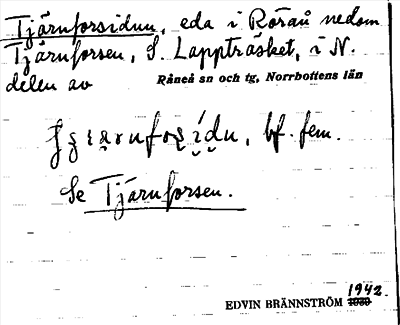 Tjärnforsidun, eda i Rörån nedom
Tjärnforsen, S. Lappträsket, i N.
delen av Råneå sn och tg, Norrbottens län
bf. fem.
Se Tjärnforsen.
1942.
EDVIN BRÄNNSTRÖM 1939